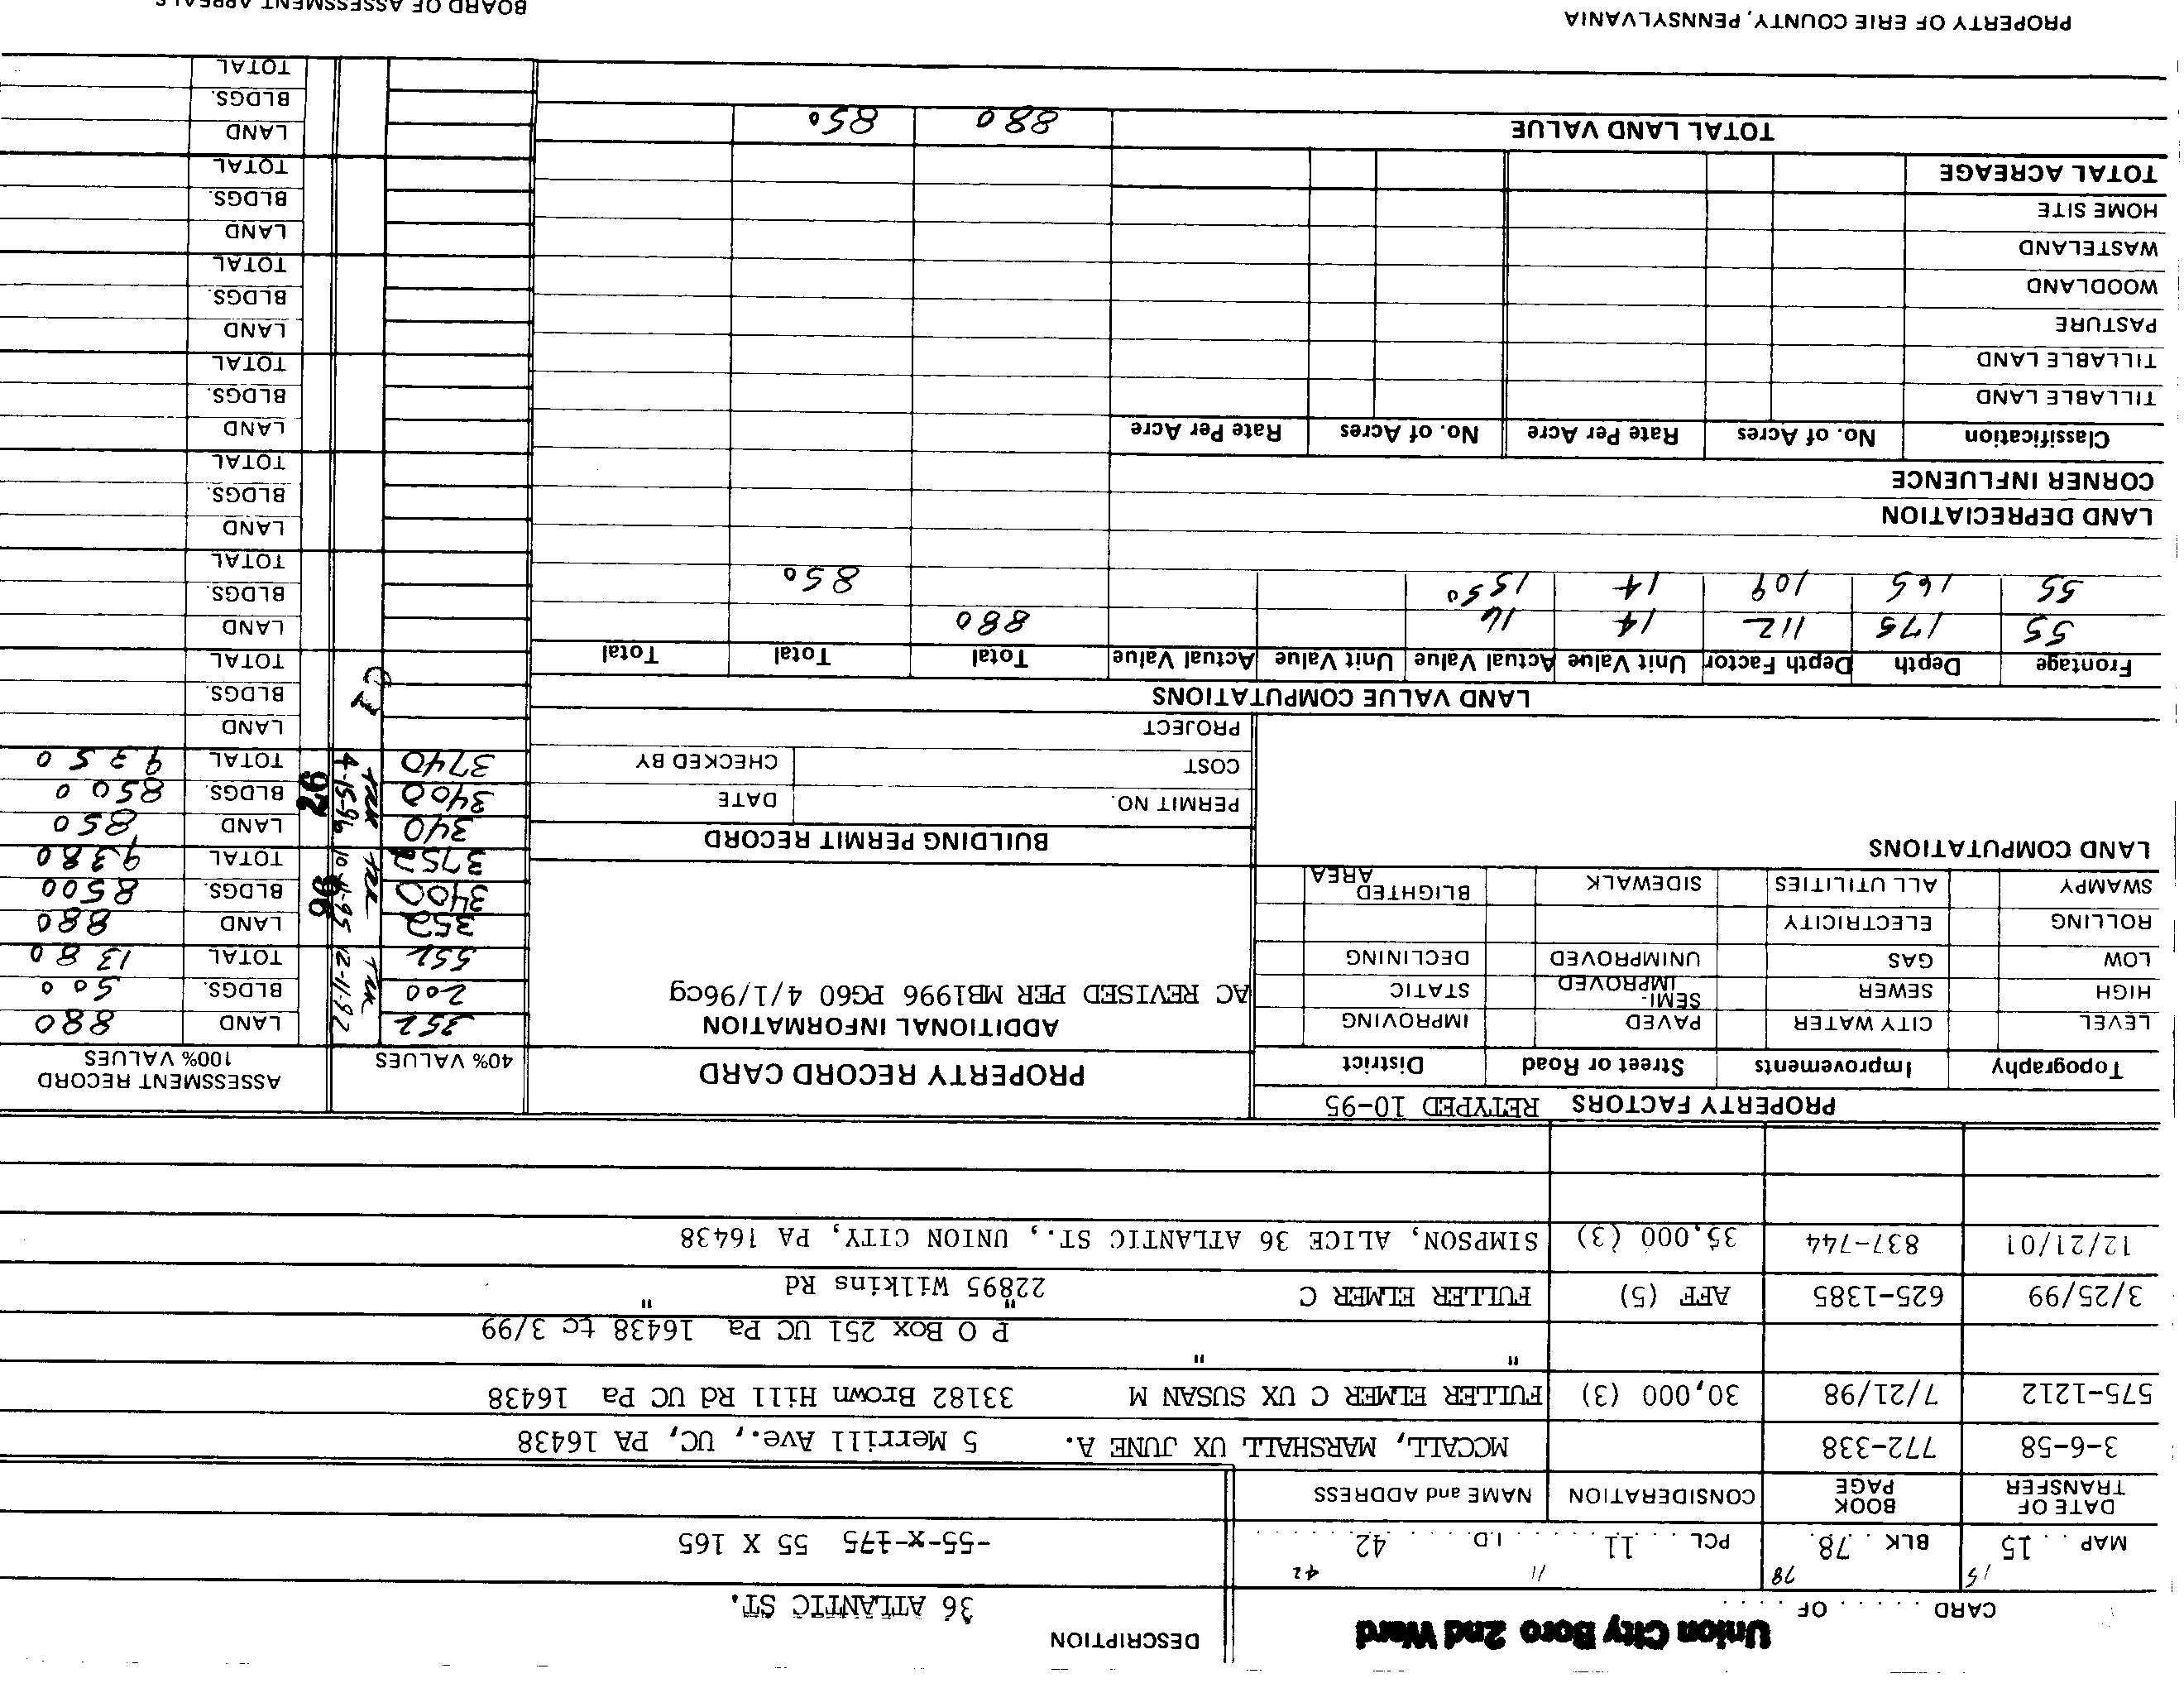 Union City Boro 2nd Ward
DESCRIPTION
CARD . . . . . . OF . . . . . .
36 ATLANTIC ST.
15 78 11 42
MAP . . 15 BLK . 78. PCL . . . 11 . . . . I.D. . . . 42
-55-x-175 55 X 165
DATE OF TRANSFER BOOK PAGE CONSIDERATION NAME and ADDRESS
3-6-58 772-338 MCCALL, MARSHALL UX JUNE A. 5 Merrill Ave., UC, PA 16438
575-1212 7/21/98 30,000 (3) FULLER ELMER C UX SUSAN M 33182 Brown Hill Rd UC Pa 16438
" " P O Box 251 UC Pa 16438 tc 3/99
3/25/99 625-1385 AFF (5) FULLER ELMER C 22895 Wilkins Rd " "
12/21/01 837-744 35,000 (3) SIMPSON, ALICE 36 ATLANTIC ST., UNION CITY, PA 16438
PROPERTY FACTORS RETYPED 10-95
Topography Improvements Street or Road District
LEVEL CITY WATER PAVED IMPROVING
HIGH SEWER SEMI-IMPROVED STATIC
LOW GAS UNIMPROVED DECLINING
ROLLING ELECTRICITY
SWAMPY ALL UTILITIES SIDEWALK BLIGHTED AREA
LAND COMPUTATIONS
PROPERTY RECORD CARD
ADDITIONAL INFORMATION
AC REVISED PER MB1996 PG60 4/1/96cg
BUILDING PERMIT RECORD
PERMIT NO. DATE
COST CHECKED BY
PROJECT
40% VALUES ASSESSMENT RECORD 100% VALUES
352 12-11-92 LAND 880
200 BLDGS. 500
552 TOTAL 1380
352 10-4-95 96 LAND 880
3400 BLDGS. 8500
3752 TOTAL 9380
340 4-15-96 97 LAND 850
3400 BLDGS. 8500
3740 TOTAL 9350
LAND
BLDGS.
TOTAL
LAND
BLDGS.
TOTAL
LAND
BLDGS.
TOTAL
LAND
BLDGS.
TOTAL
LAND
BLDGS.
TOTAL
LAND
BLDGS.
TOTAL
LAND
BLDGS.
TOTAL
LAND VALUE COMPUTATIONS
Frontage Depth Depth Factor Unit Value Actual Value Unit Value Actual Value Total Total Total
55 175 112 14 16 880
55 165 109 14 1550 850
LAND DEPRECIATION
CORNER INFLUENCE
Classification No. of Acres Rate Per Acre No. of Acres Rate Per Acre
TILLABLE LAND
TILLABLE LAND
PASTURE
WOODLAND
WASTELAND
HOME SITE
TOTAL ACREAGE
TOTAL LAND VALUE 880 850
PROPERTY OF ERIE COUNTY, PENNSYLVANIA
BOARD OF ASSESSMENT APPEALS